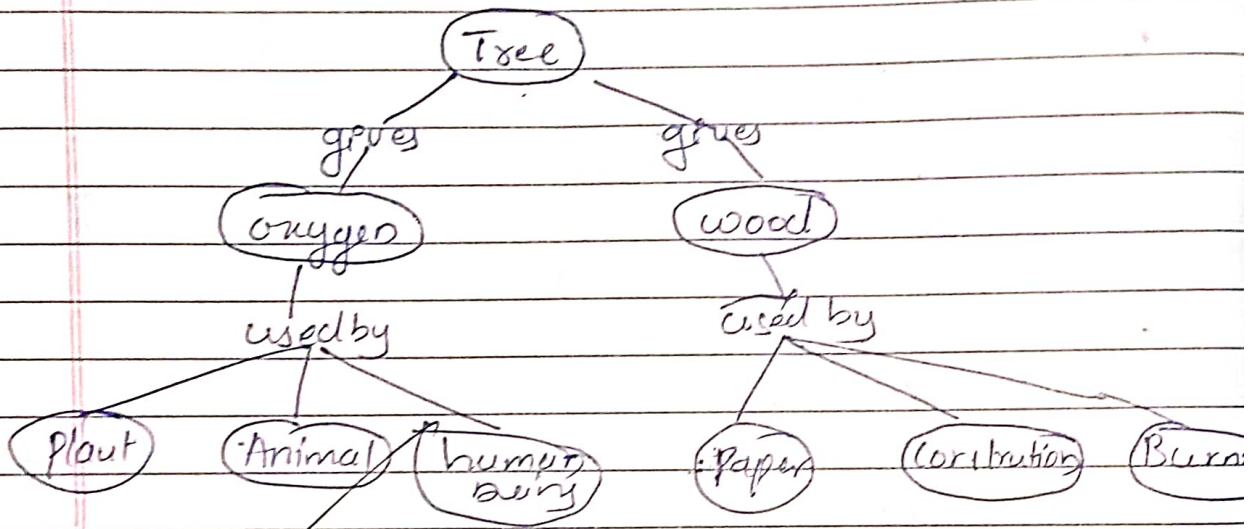 Tree
gives gives
oxygen wood
used by used by
Plant Animal human Paper Constrution Burn
being